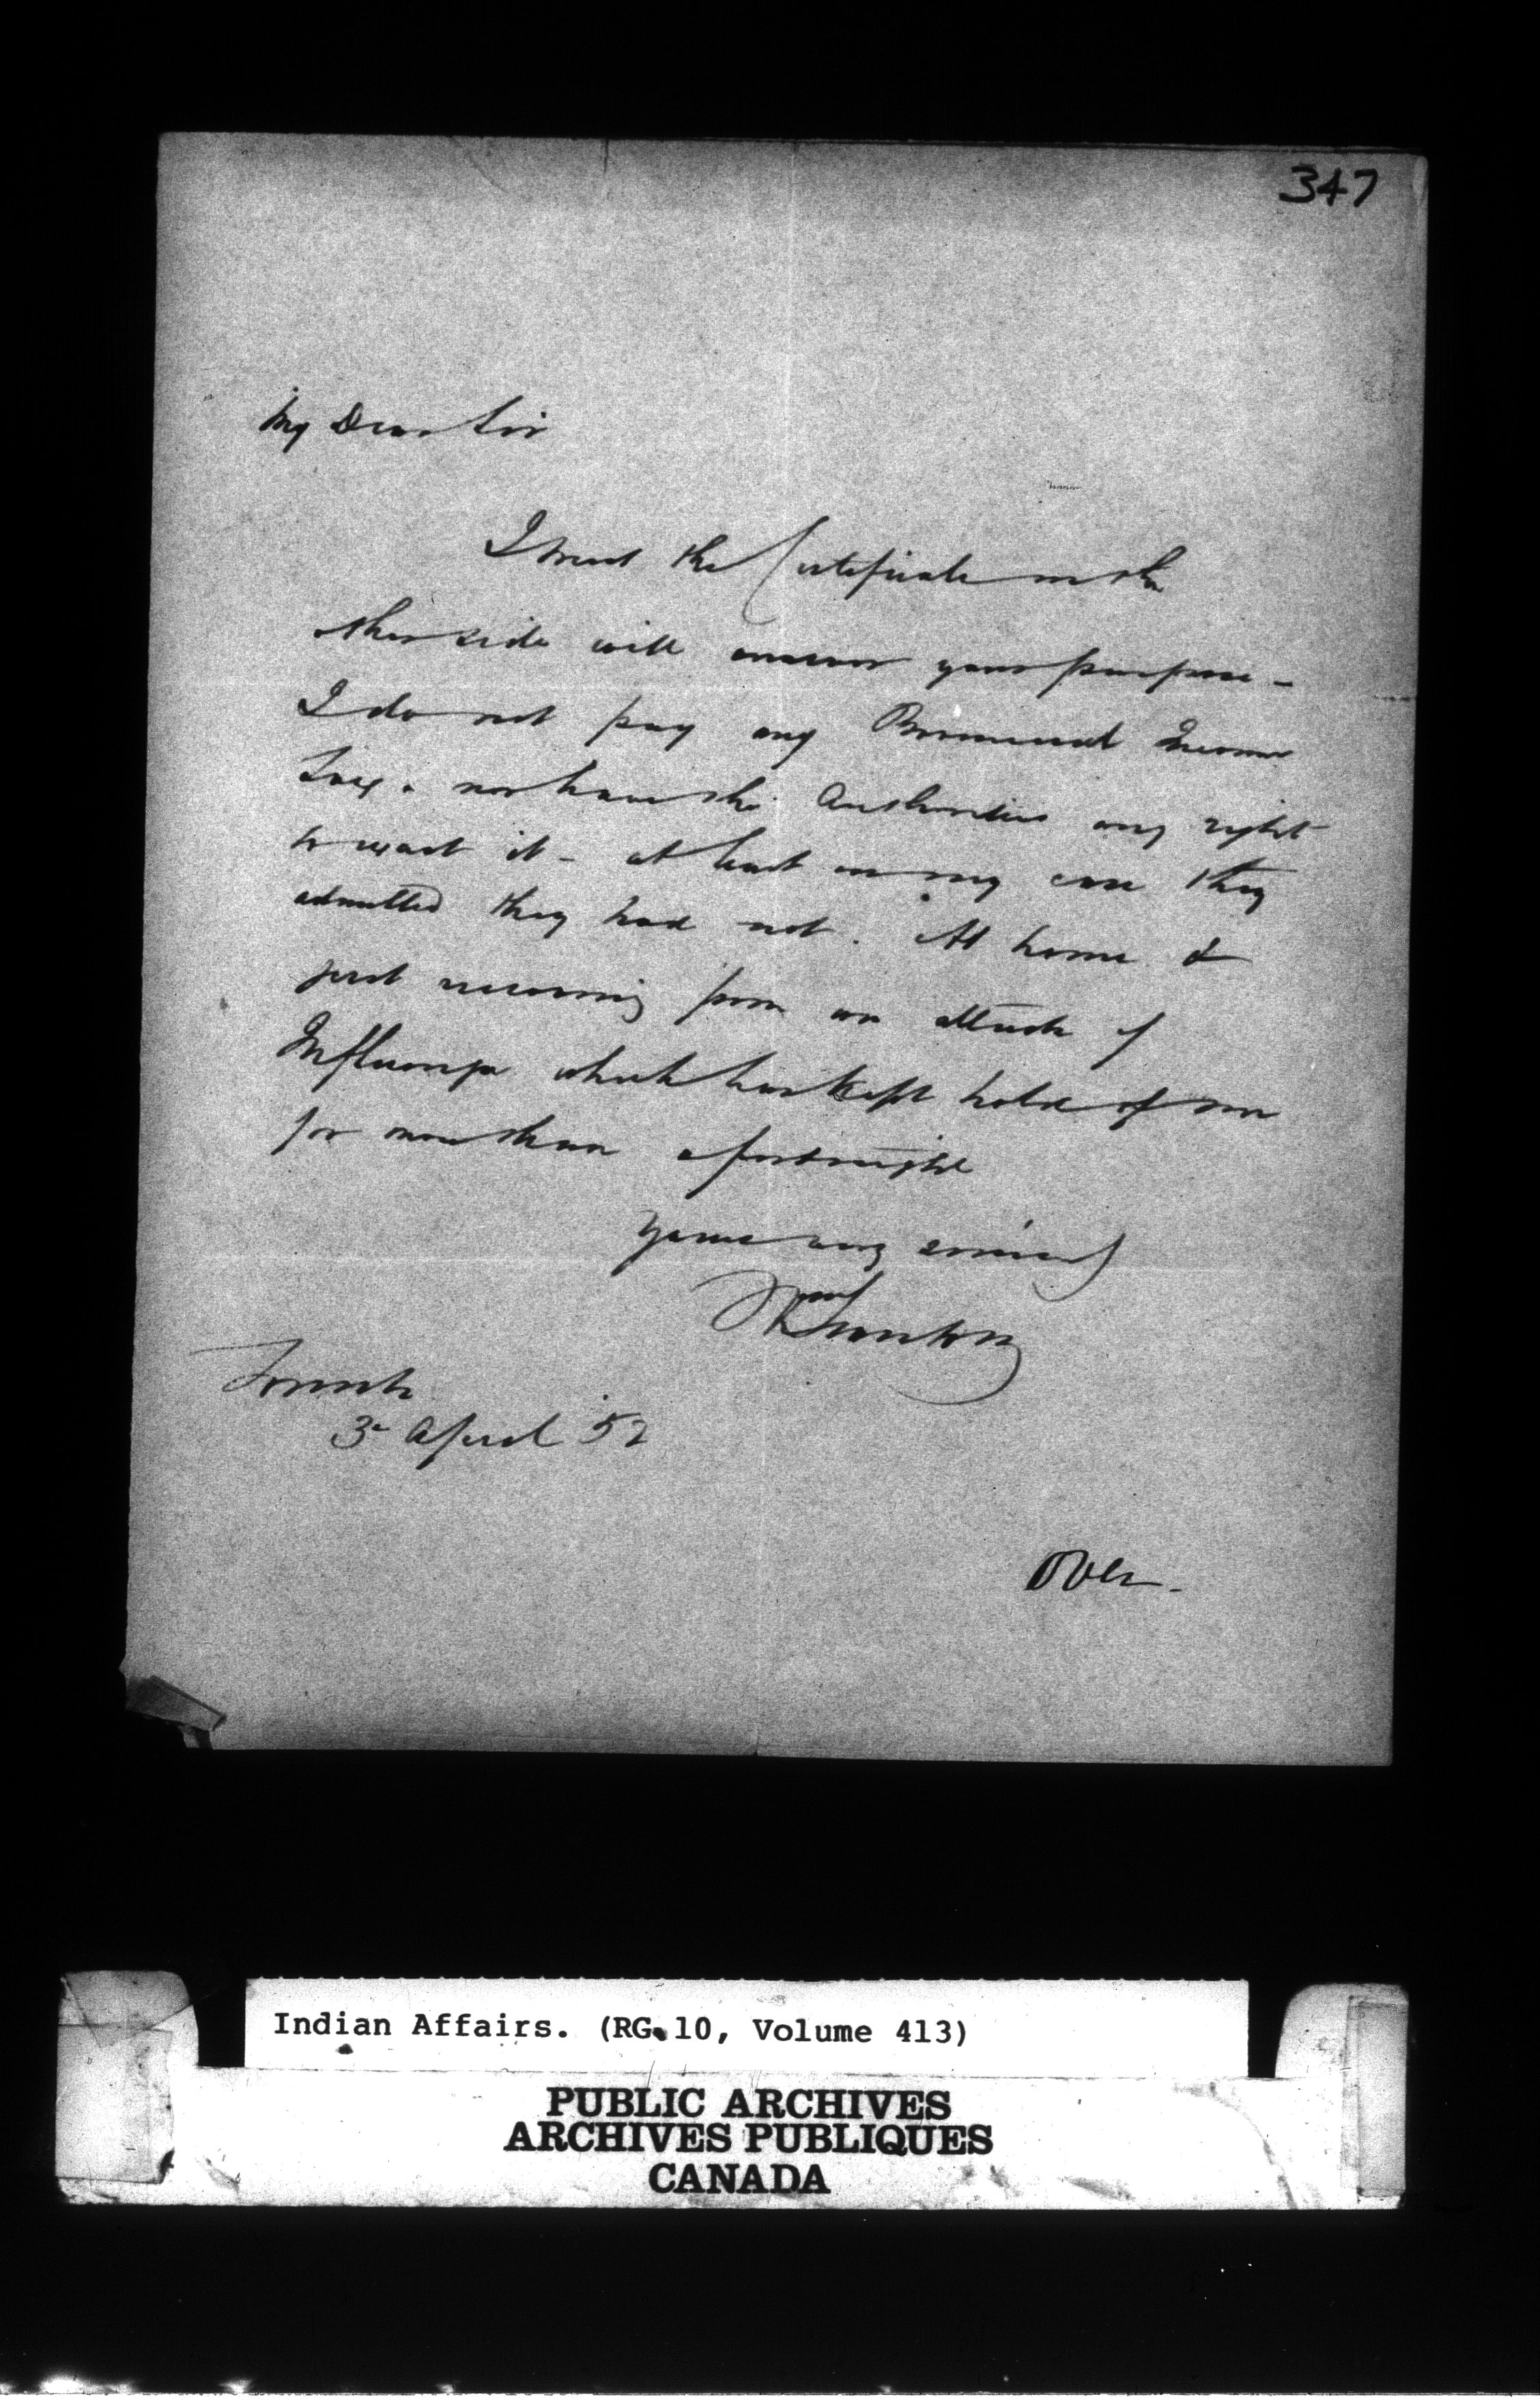 347
My Dear Sir
I trust the Certificate on the
other side will answer your purpose -
I do not pay any Provincial Income
Tax. nor have the Authorities any right
to exact it - at least in my case they
admitted they had not. At home &
just recovering from an attack of
Influenza which has kept hold of me
for more than a fortnight
Yours very sincerely
Stanton
Toronto
3d April 52
Over -
Indian Affairs. (RG 10, Volume 413)
PUBLIC ARCHIVES
ARCHIVES PUBLIQUES
CANADA